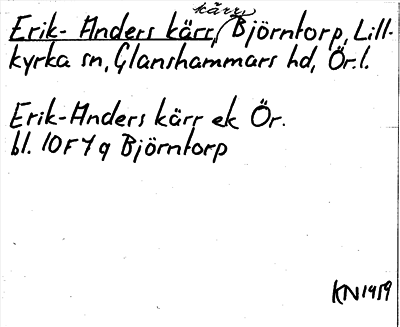 kärr
Erik-Anders kärr, Björntorp, Lill-
kyrka sn, Glanshammars hd, Ör.l.
Erik-Anders kärr ek Ör.
bl. 10F7g Björntorp
KN1959